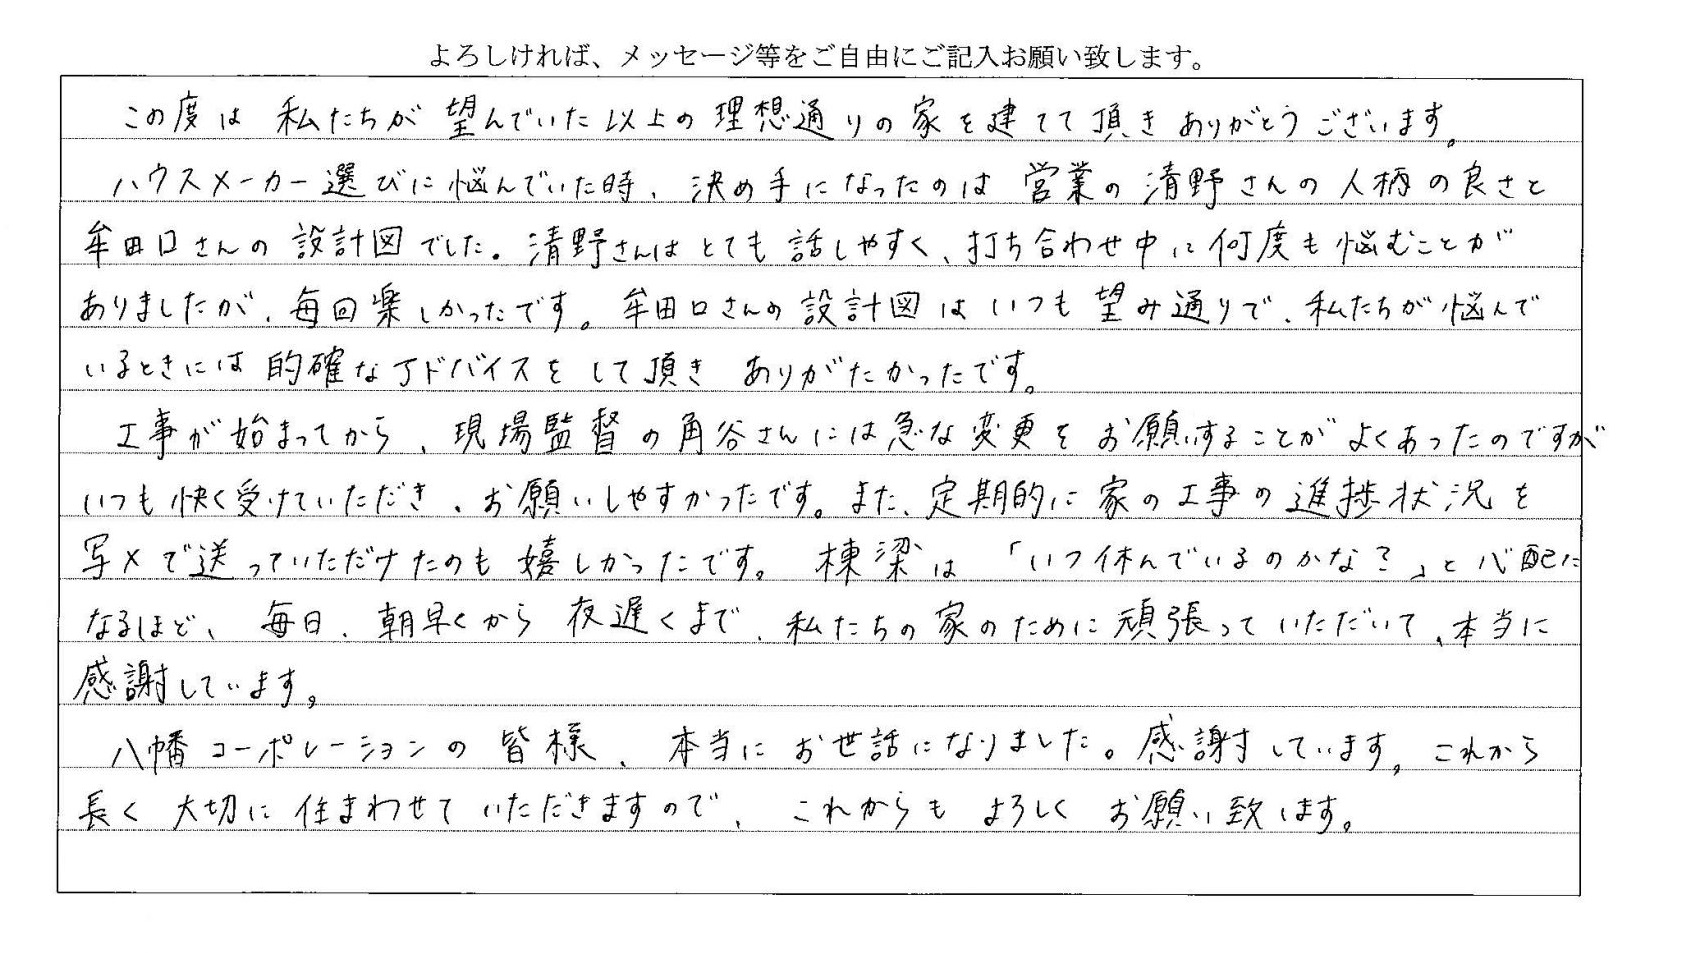 よろしければ、メッセージ等をご自由にご記入お願い致します。
この度は 私たちが 望んでいた以上の理想通りの 家を建てて頂き ありがとうございます。
ハウスメーカー選びに悩んでいた時、決め手になったのは 営業の清野さんの人柄の良さと
牟田口さんの設計図でした。清野さんはとても話しやすく、打ち合わせ中に何度も悩むことが
ありましたが、毎回楽しかったです。牟田口さんの設計図はいつも望み通りで、私たちが悩んで
いるときには的確なアドバイスをして頂き ありがたかったです。
工事が始まってから、現場監督の角谷さんには急な変更をお願いすることがよくあったのですが
いつも快く受けていただき、お願いしやすかったです。また、定期的に家の工事の進捗状況を
写メで送っていただけたのも嬉しかったです。棟梁は「いつ休んでいるのかな?」と心配に
なるほど、毎日、朝早くから夜遅くまで、私たちの家のために頑張っていただいて、本当に
感謝しています。
八幡コーポレーションの皆様、本当にお世話になりました。感謝しています。これから
長く大切に住まわせていただきますので、これからもよろしくお願い致します。